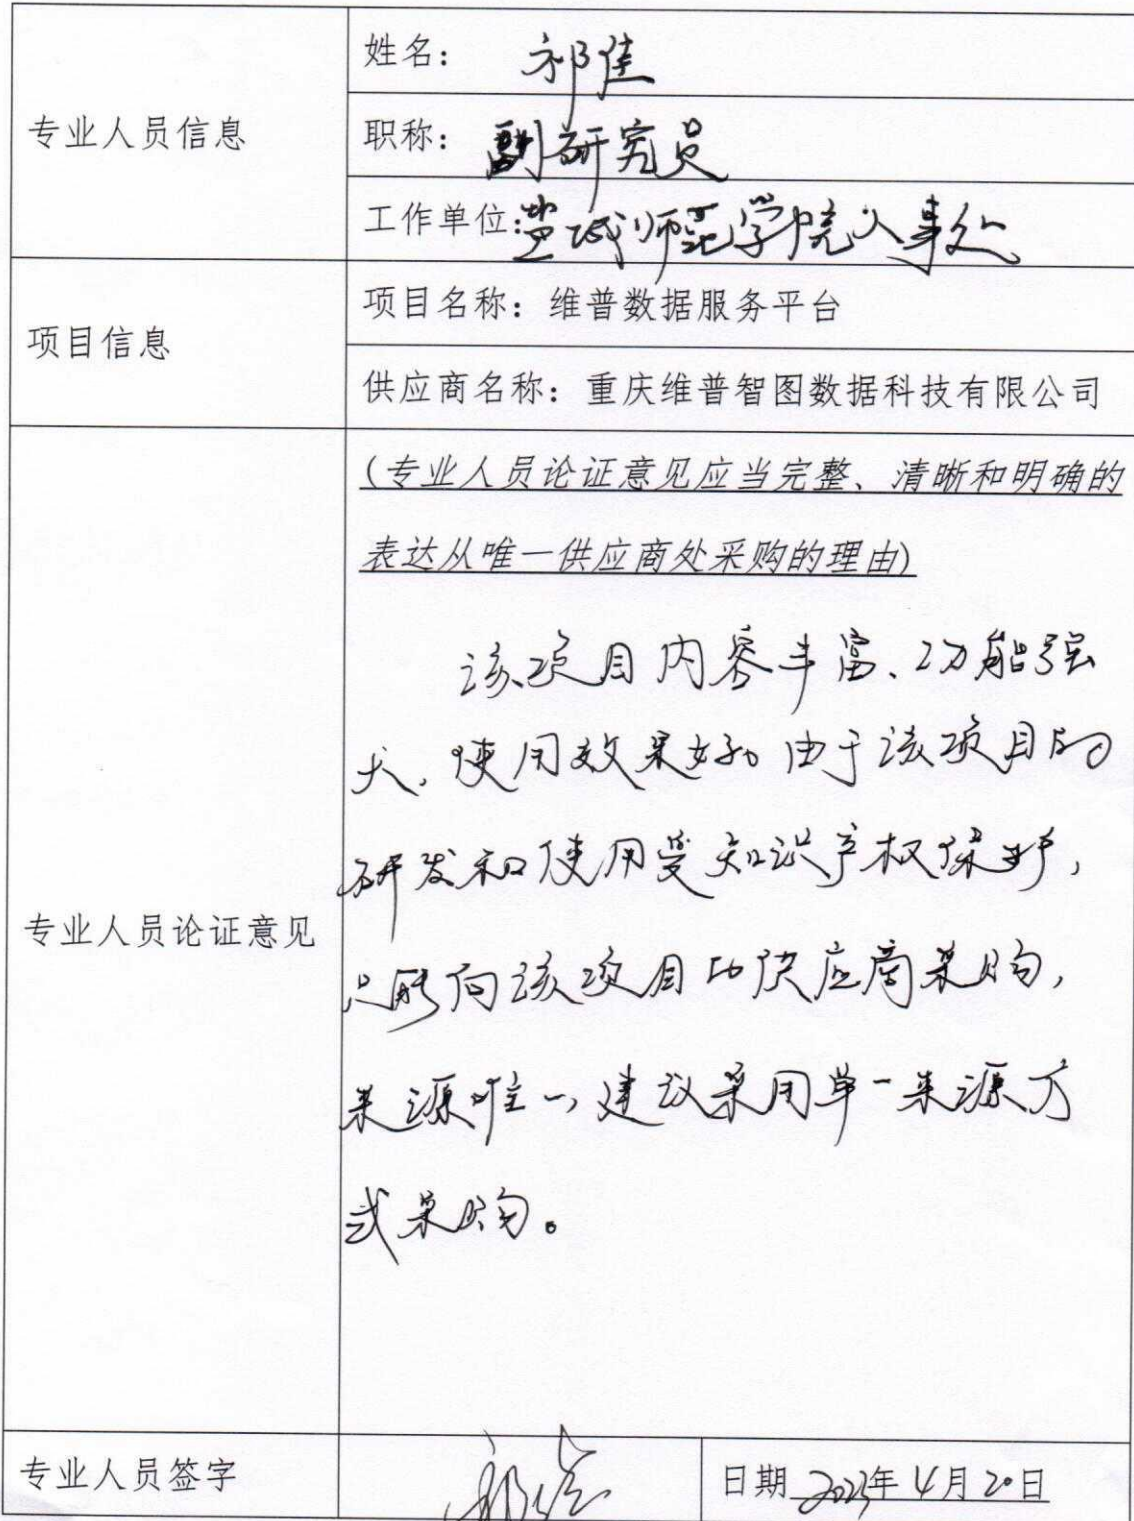 专业人员信息
姓名: 祁佳
职称: 副研究员
工作单位: 盐城师范学院人事处
项目信息
项目名称: 维普数据服务平台
供应商名称: 重庆维普智图数据科技有限公司
专业人员论证意见
(专业人员论证意见应当完整、清晰和明确的
表达从唯一供应商处采购的理由)
该项目内容丰富、功能强
大,使用效果好。由于该项目的
研发和使用受知识产权保护,
只能向该项目的供应商采购,
来源唯一,建议采用单一来源方
式采购。
专业人员签字
祁佳
日期 年4月20日